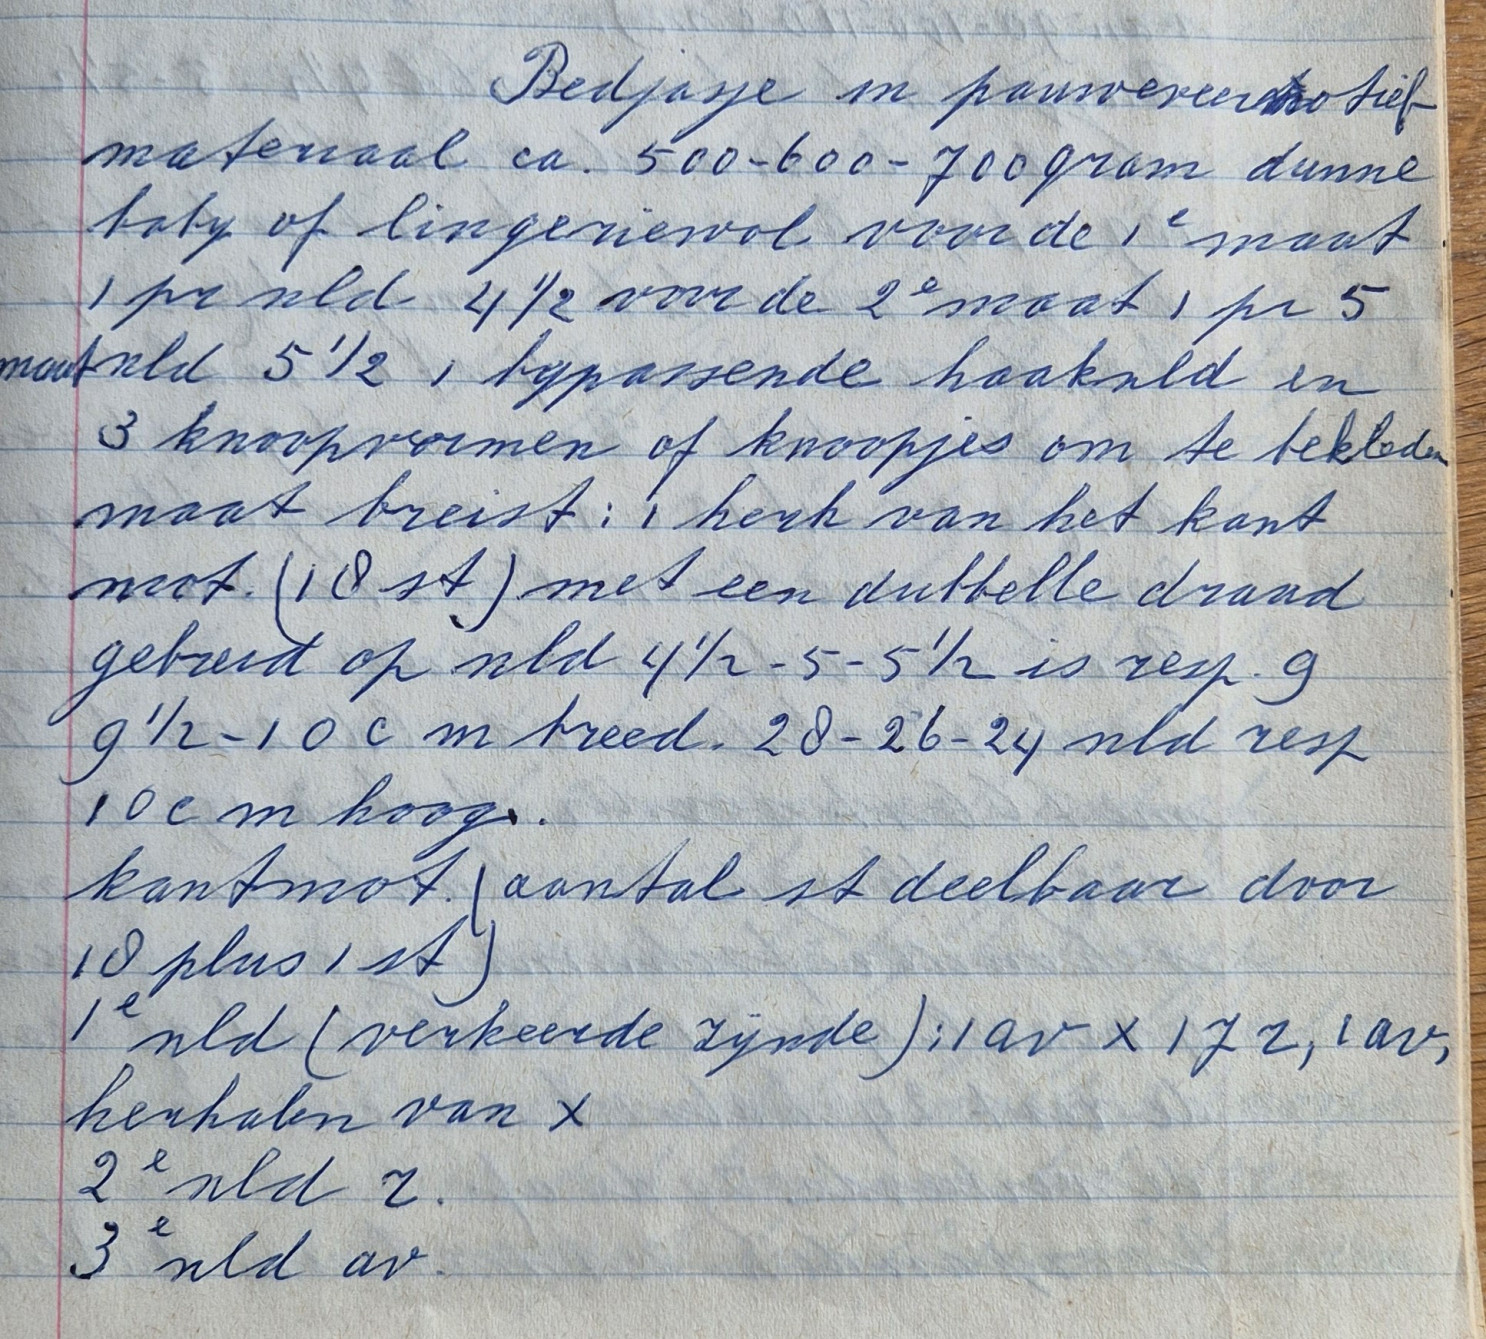 Bedjasje in pauweveermotief
materiaal ca. 500-600-700 gram dunne
baby of lingeriewol voor de 1e maat
1 pr nld 4 1/2 voor de 2e maat 1 pr 5
maat nld 5 1/2 1 bypassende haaknld en
3 knoopvormen of knoopjes om te bekleden
maat breist: 1 herh van het kant
mot. (18 st) met een dubbelle draad
gebreid op nld 4 1/2 - 5 - 5 1/2 is resp. 9
9 1/2 - 10 cm breed. 28-26-24 nld resp
10 cm hoog.
kantmot. (aantal st deelbaar door
18 plus 1 st)
1e nld (verkeerde zijnde): 1 av x 17 r, 1 av,
herhalen van x
2e nld r.
3e nld av.